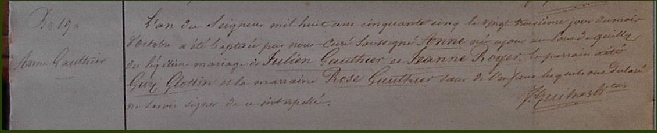 No 19.
Anne Gauthier
L'an du Seigneur mil huit cent cinquante cinq le vingt troisième jour du mois
d'octobre a été baptisée par nous curé soussigné Anne née ce jour au
du légitime mariage de Julien Gauthier et Jeanne Royer. Le parrain a été
Guy Glottin et la marraine Rose Gauthier de l'enfant lesquels ont déclaré
ne savoir signer de ce interpellés.